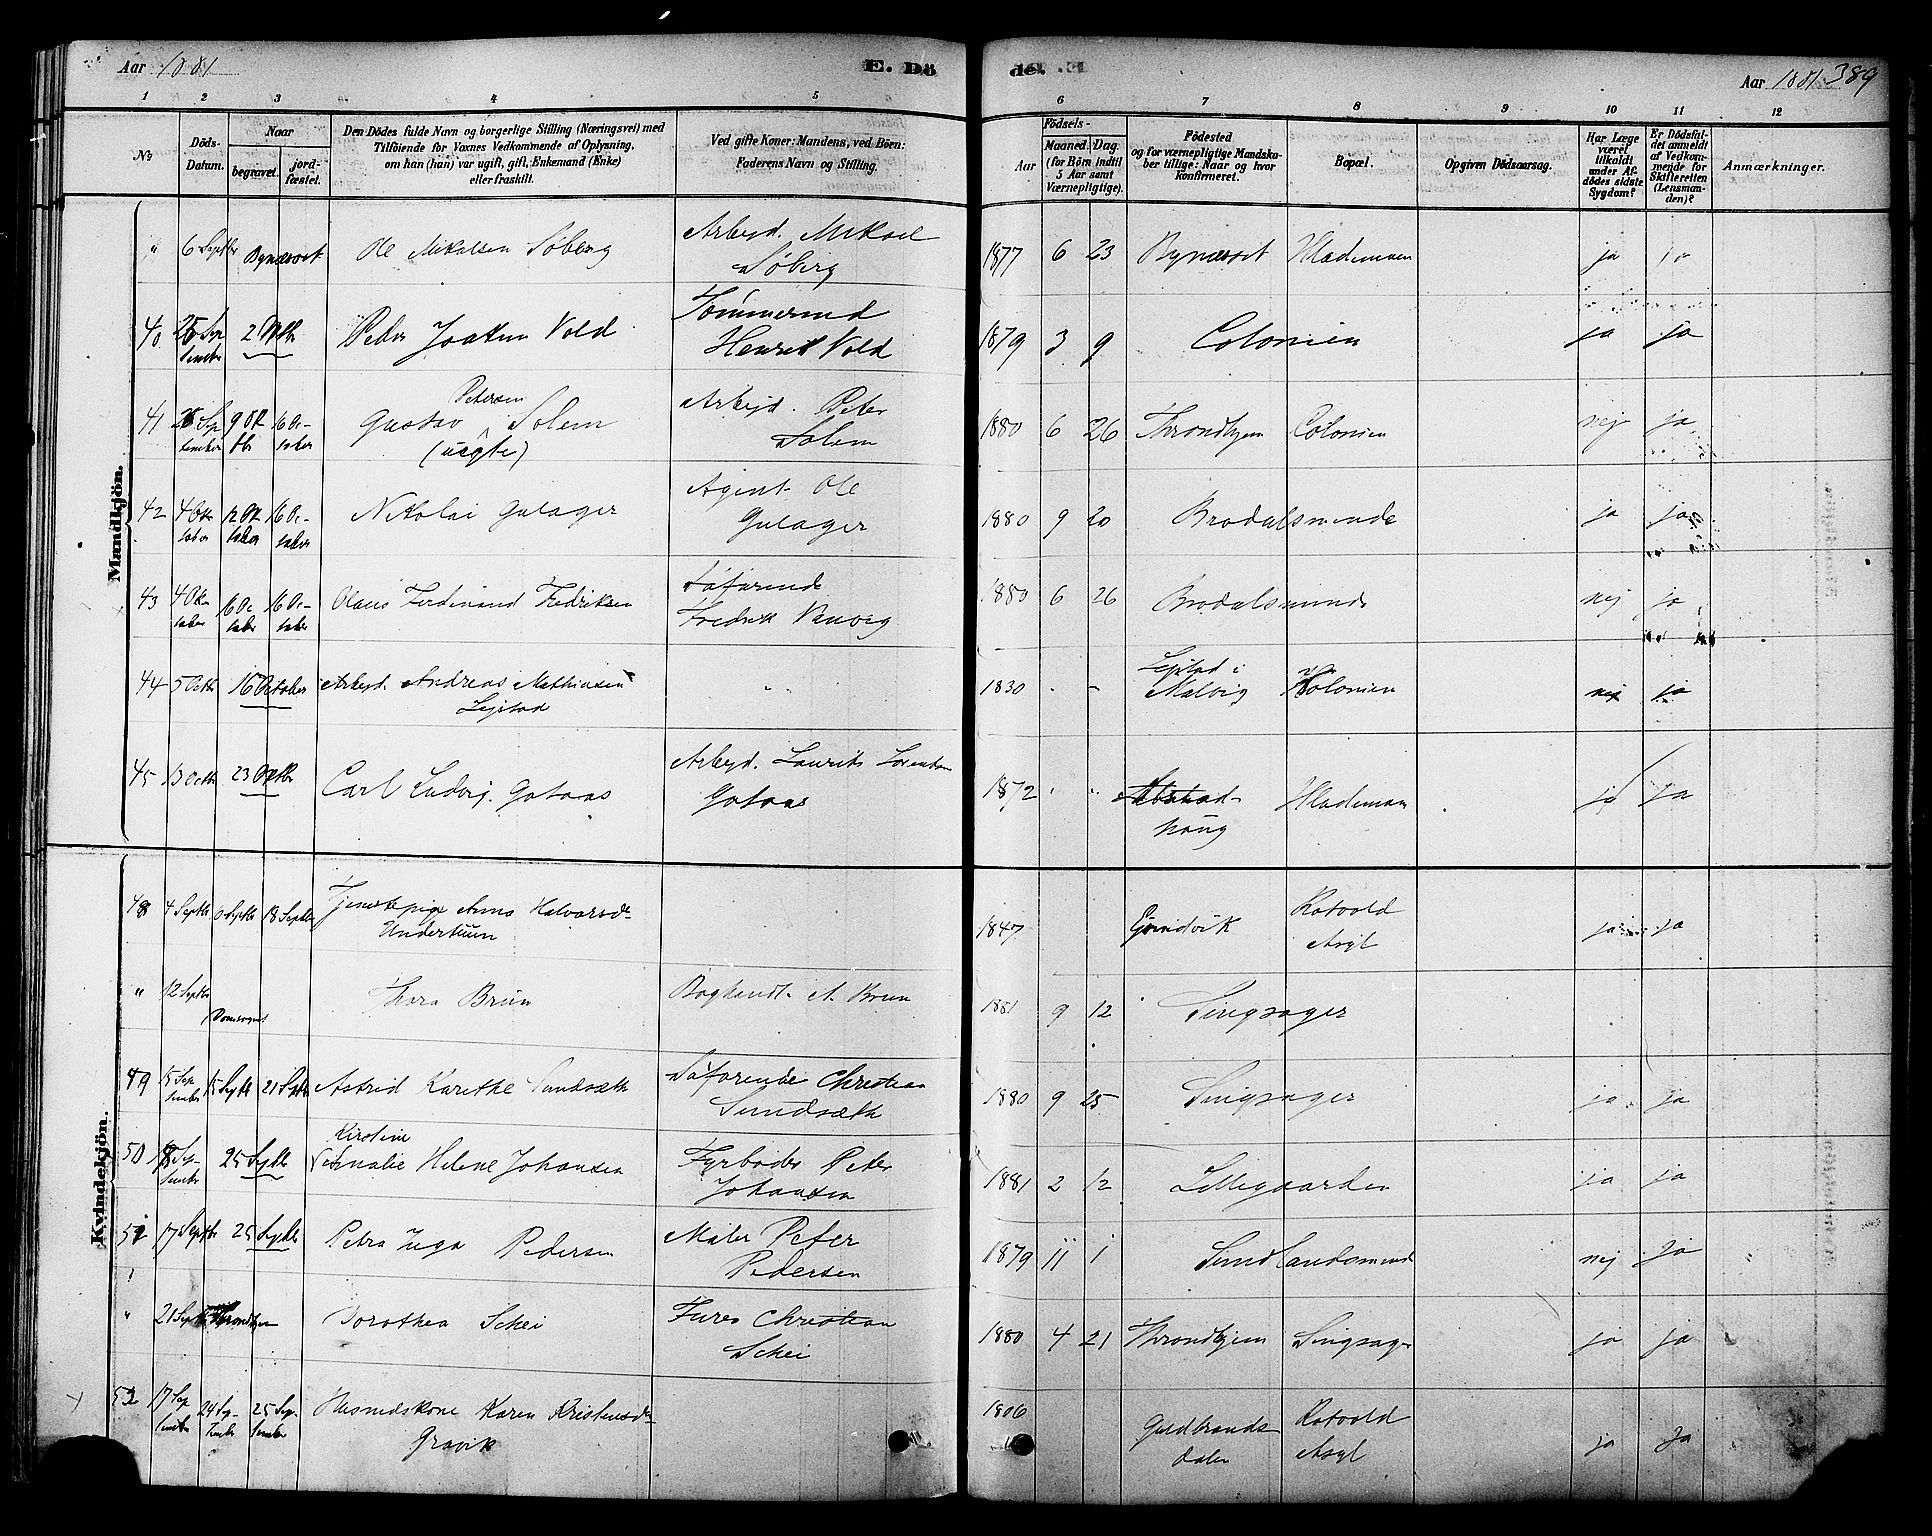 Aar 1881
E. Dö
de.
Aar 1881
389
1 2 3 4 5 6 7 8 9 10 11 12
No
Döds-Datum.
Naar
begravet.
jord-fæstet.
Den Dödes fulde Navn og borgerlige Stilling (Næringsvei) med
Tilföiende for Voxnes Vedkommende af Oplysning,
om han (hun) var ugift, gift, Enkemand (Enke)
eller fraskilt.
Ved gifte Koner: Mandens, ved Börn:
Faderens Navn og Stilling.
Födsels-
Aar
Maaned. Dag.
(for Börn indtil
5 Aar samt
Værnepligtige).
Födested
og for værnepligtige Mandska-
ber tillige: Naar og hvor
konfirmeret.
Bopæl.
Opgiven Dödsaarsag.
Har Læge
været
tilkaldt
under Af-
dödes sidste
Sygdom?
Er Dödsfal-
det anmeldt
af Vedkom-
mende for
Skifteretten
(Lensman-
den)?
Anmærkninger.
Mandkjön.
" 6 Septbr Bynæsset Ole Mikalsen Söberg Arbeid. Mikael Söberg 1877 6 23 Bynæsset Hlademoen ja ja
40 25 September 2 Oktb Peder Joakim Vold Tömmermd Henrik Vold 1879 3 9 Colonien ja ja
41 September 9 Oktbr 16 October Gustav Petersen Solem (uægte) Arbeid. Peter Solem 1880 6 26 Throndhjem Colonien nej ja
42 4 October 12 October 16 October Nikolai Gulager Agent Ole Gulager 1880 9 20 Brodalsminde ja ja
43 4 October 16 October 16 October Olaus Ferdinand Fredriksen Söfarende Fredrik 1880 6 26 Brodalsminde nej ja
44 5 Octbr 16 October Arbeid. Andreas Mathiasen Leistad " " 1830 - - Leistad i Malvig Colonien nej ja
45 13 Octbr 23 Octbr Carl Ludvig Gotaas Arbeid. Laurits Gotaas 1872 " " Hlademoen ja ja
Kvindekjön.
48 4 Septbr Septbr 18 Septbr Tjenestepige Anna Halvorsdr Undertuun 1847 Grindvik Rotvold Asyl ja ja
" 12 Septbr Domsognet Thora Brun Boghandl. A. Brun 1881 9 12 Singsager
49 15 September Septbr 21 Septbr Astrid Karethe Sundsæth Söfarende Christian Sundsæth 1880 9 25 Singsager ja ja
50 18 September 25 Septbr Kirstine Helene Johansen Fyrböder Peter Johansen 1881 2 12 Lillegaarden ja ja
51 17 Septbr 25 Septbr Petra Inga Pedersen Maler Peter Pedersen 1879 11 1 Sundlandsmind nej ja "
" 21 Septbr Throndhjem Dorothea Schei Christian Schei 1880 4 21 Throndhjem Singsager ja ja
52 17 September 24 September 25 September Husmdskone Karen Kristensdr Gravik 1806 Guldbrandsdalen Rotvold Asyl ja ja